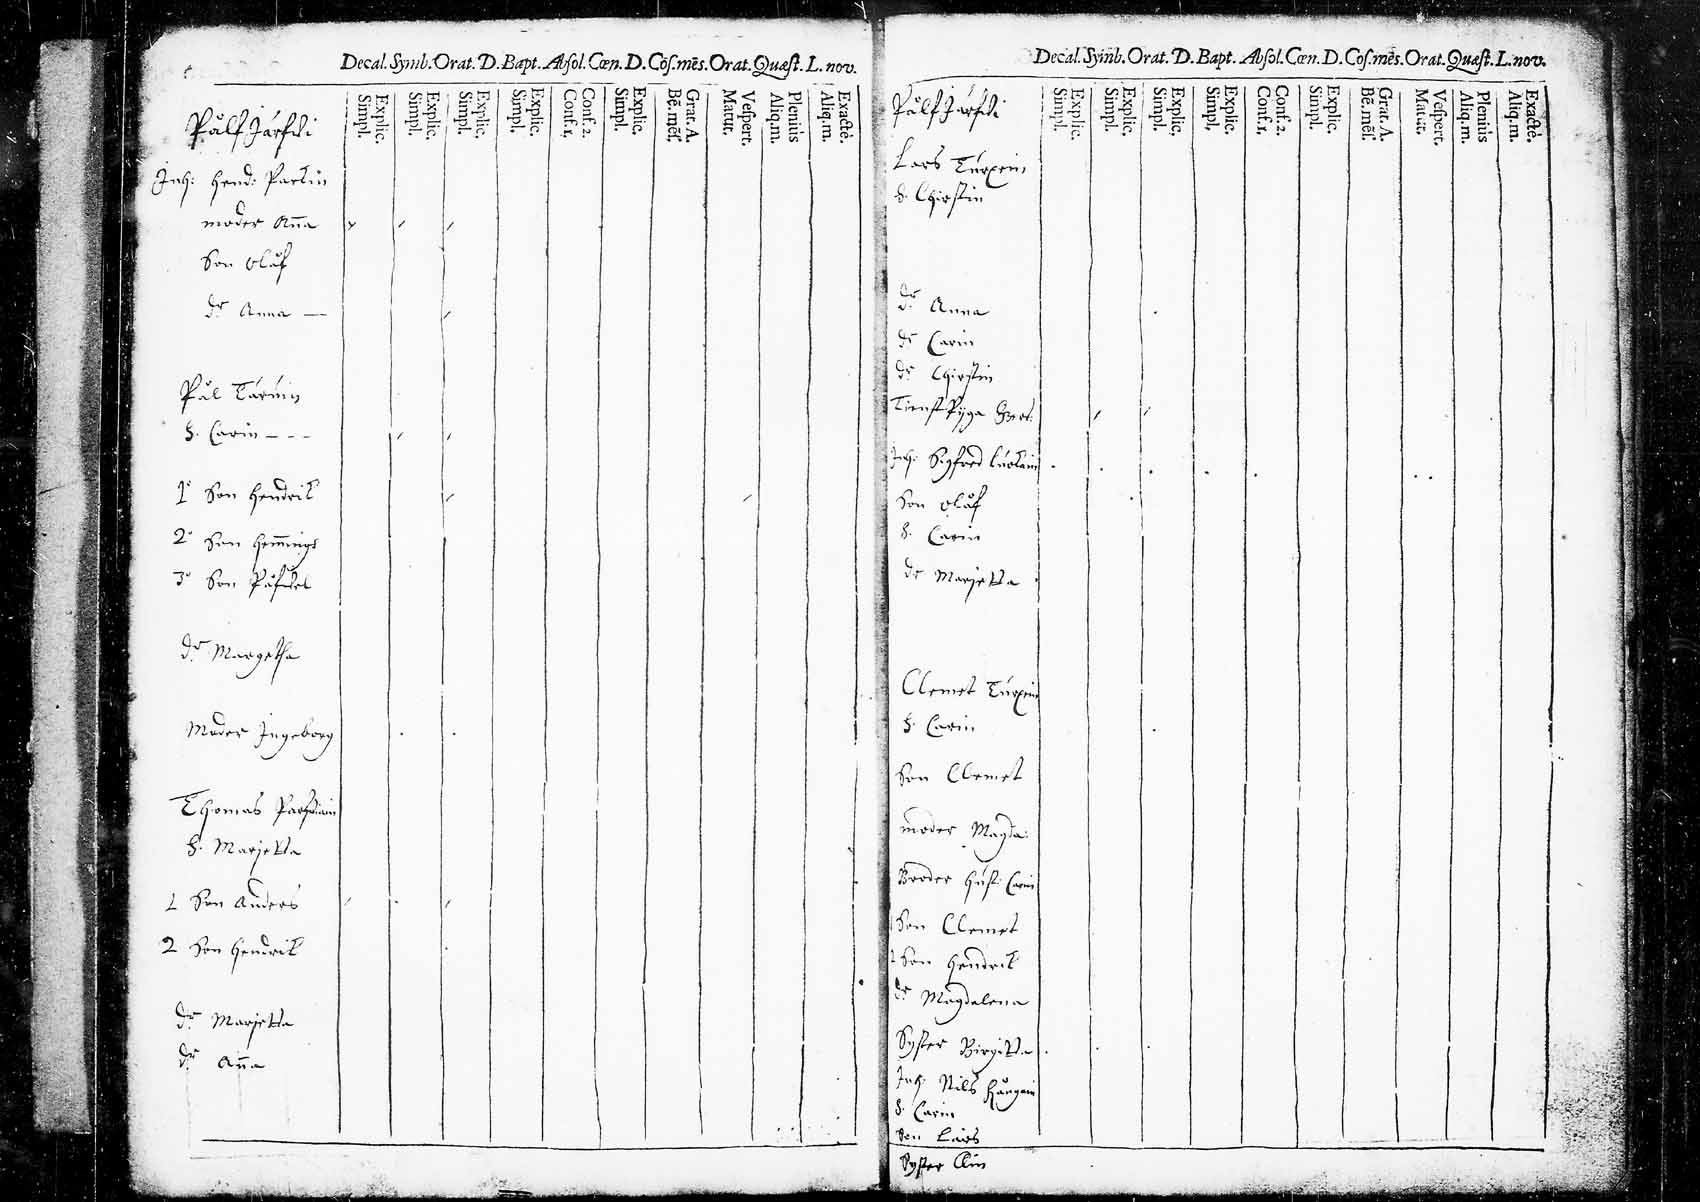 Decal. Symb. Orat. D. Bapt. Absol. Cœn. D. Cōf. mēs. Orat. Quæst. L. nov.
Explic. Simpl. Explic. Simpl. Explic. Simpl. Explic. Simpl. Conf. 2. Conf. 1. Explic. Simpl. Grat. A. Bē. mēs. Vespert. Matut. Plenius Aliq. m. Exactè. Aliq. m.
Pålf Järfwi
Inh: Hend: Parkin
moder Aña
Son Olåf
dr Anna
Pål
h. Carin
1 Son Hendrik
2 Son Hem̄ings
3 Son Påfwel
dr Margetha
Moder Ingeborg
Thomas
h. Marjetta
1 Son Anders
2 Son Hendrik
dr Marjetta
dr Aña
Decal. Symb. Orat. D. Bapt. Absol. Cœn. D. Cos. mēs. Orat. Quæst. L. nov.
Explic. Simpl. Explic. Simpl. Explic. Simpl. Explic. Simpl. Conf. 2. Conf. 1. Explic. Simpl. Grat. A. Bē. mēs. Vespert. Matut. Plenius Aliq. m. Exactè. Aliq. m.
Pålf Järfwi
Lars Turpein
h. Chirstin
dr Anna
dr Carin
dr Chirstin
Tienst Pijga
Inh: Sigfred
Son Olåf
h. Carin
dr Marjetta
Clemet Turpein
h. Carin
Son Clemet
moder Magda:
Broder hust: Carin
Son Clemet
2 Son Hendrik
dr Magdalena
Syster Birgitta
Inh: Nils
h. Carin
Son Lars
Syster Elin